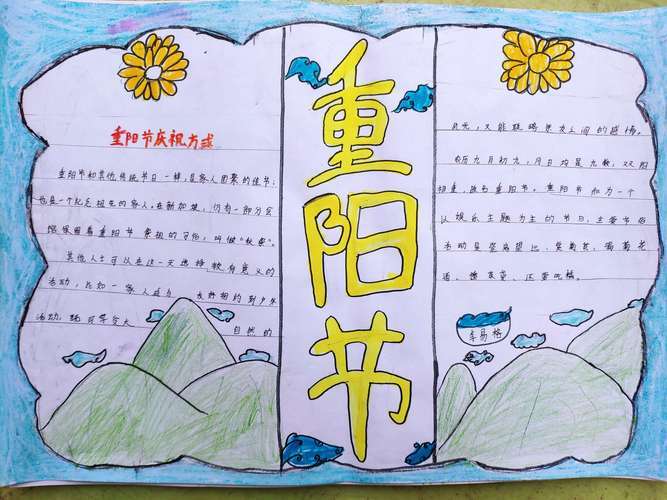 重阳节庆祝方式
重阳节和其他传统节日一样,是家人团聚的佳节;
也是一个纪念祖先的家人。在新加坡,仍有一部分家
庭保留着重阳节祭祖的习俗,叫做"秋祭"。
其他人士可以在这一天选择较有意义的
活动,比如一家人或与友好相约到户外
活动,既可享受大自然的
重阳节
风光,又能联络朋友之间的感情。
农历九月初九,月日均是九数,双阳
相重,故名重阳节。重阳节和为一个
以娱乐主题为主的节日,主要节俗
活动是登高望远、赏菊花、喝菊花
酒、插茱萸、还要吃糕。
易格